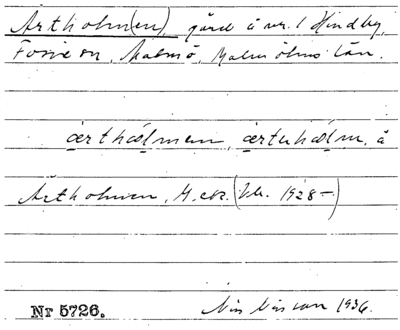 Ärtholm(en), gård å nr. 1 Hindby,
Fosie sn, Malmö, Malmöhus län.
ærthælmen, ærtuhælm, å
Ärtholmen, G. ek. (Bl. 1928–)
Nr 5726. Nils Nilsson 1936.